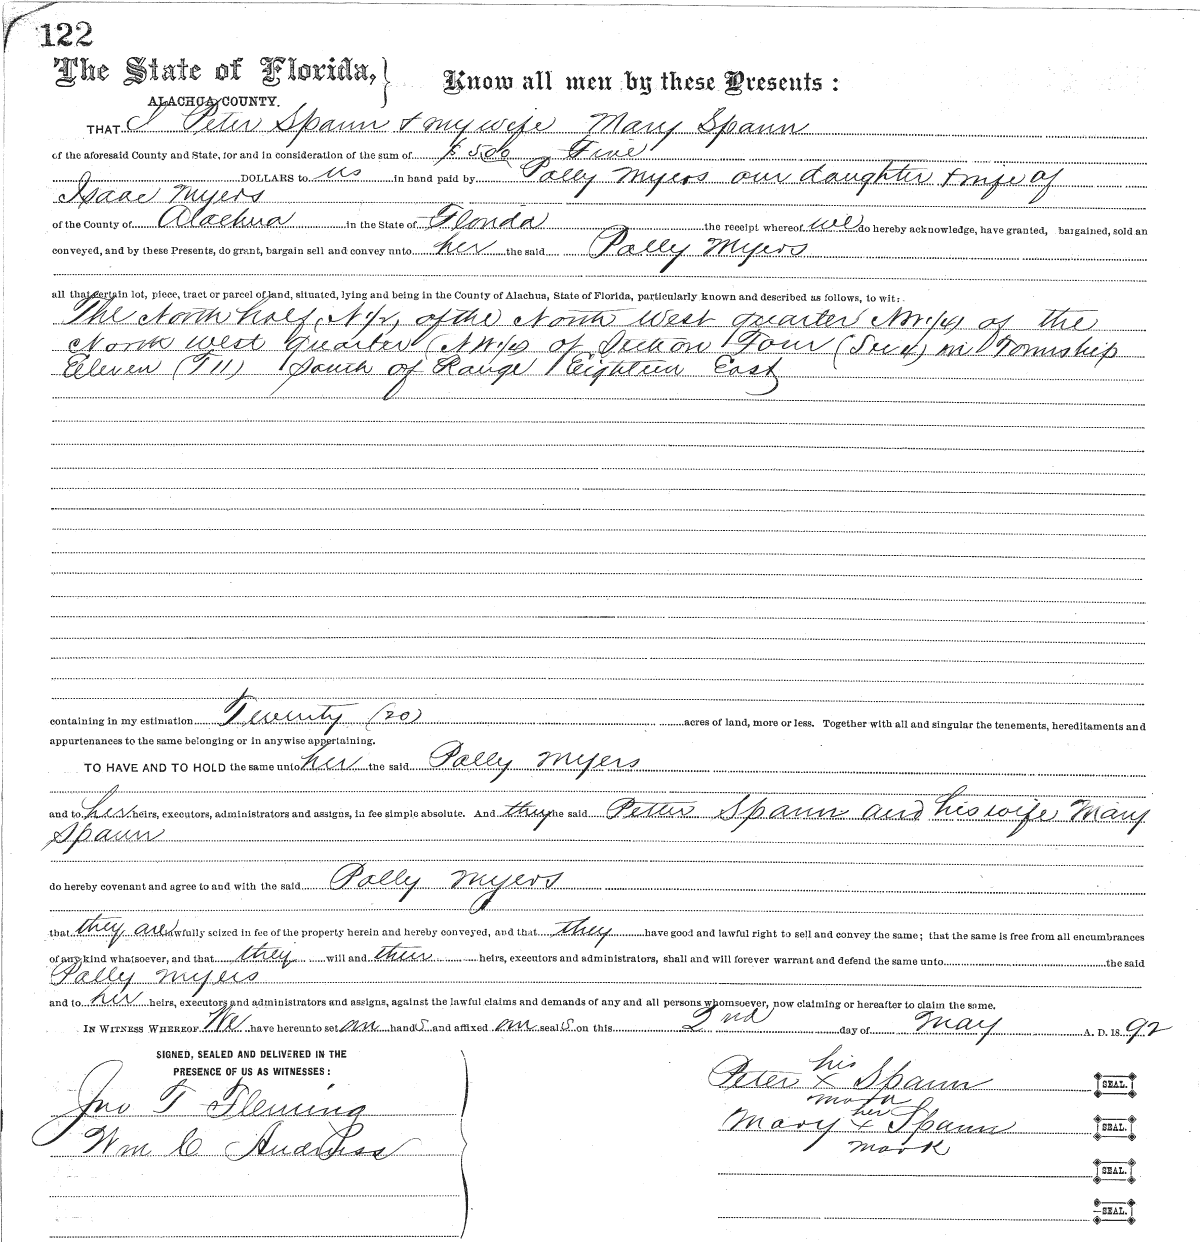 122
The State of Florida,
ALACHUA COUNTY.
Know all men by these Presents:
THAT I Peter Spann & my wife Mary Spann
of the aforesaid County and State, for and in consideration of the sum of $5.00 Five
DOLLARS to us in hand paid by Polly Myers our daughter & wife of
Isaac Myers
of the County of Alachua in the State of Florida the receipt whereof we do hereby acknowledge, have granted, bargained, sold an
conveyed, and by these Presents, do grant, bargain sell and convey unto her the said Polly Myers
all that certain lot, piece, tract or parcel of land, situated, lying and being in the County of Alachua, State of Florida, particularly known and described as follows, to wit:
The North half, N 1/2, of the North West quarter NW 1/4) of the
North west quarter (NW 1/4) of Section Four (Sec 4) in Township
Eleven (T11) South of Range Eighteen East
containing in my estimation Twenty (20) acres of land, more or less. Together with all and singular the tenements, hereditaments and
appurtenances to the same belonging or in anywise appertaining.
TO HAVE AND TO HOLD the same unto her the said Polly Myers
and to her heirs, executors, administrators and assigns, in fee simple absolute. And they the said Peter Spann and his wife Mary
Spann
do hereby covenant and agree to and with the said Polly Myers
that they are lawfully seized in fee of the property herein and hereby conveyed, and that they have good and lawful right to sell and convey the same; that the same is free from all encumbrances
of any kind whatsoever, and that they will and their heirs, executors and administrators, shall and will forever warrant and defend the same unto the said
Polly Myers
and to her heirs, executors and administrators and assigns, against the lawful claims and demands of any and all persons whomsoever, now claiming or hereafter to claim the same.
IN WITNESS WHEREOF We have hereunto set our hands and affixed our seals on this 2nd day of May A. D. 1892
SIGNED, SEALED AND DELIVERED IN THE
PRESENCE OF US AS WITNESSES:
Jno T Fleming
Wm C
his
Peter x Spann SEAL.
mark
her
Mary x Spann SEAL.
mark
SEAL.
SEAL.